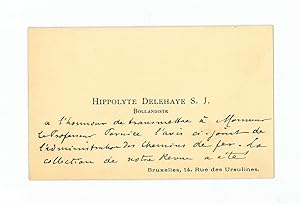 HIPPOLYTE DELEHAYE S. J.
BOLLANDISTE
a l'honneur de transmettre à Monsieur
le Professeur Pernice l'avis ci-joint de
l'administration des Chemins de fer. La
collection de notre Revue a été
Bruxelles, 14, Rue des Ursulines.